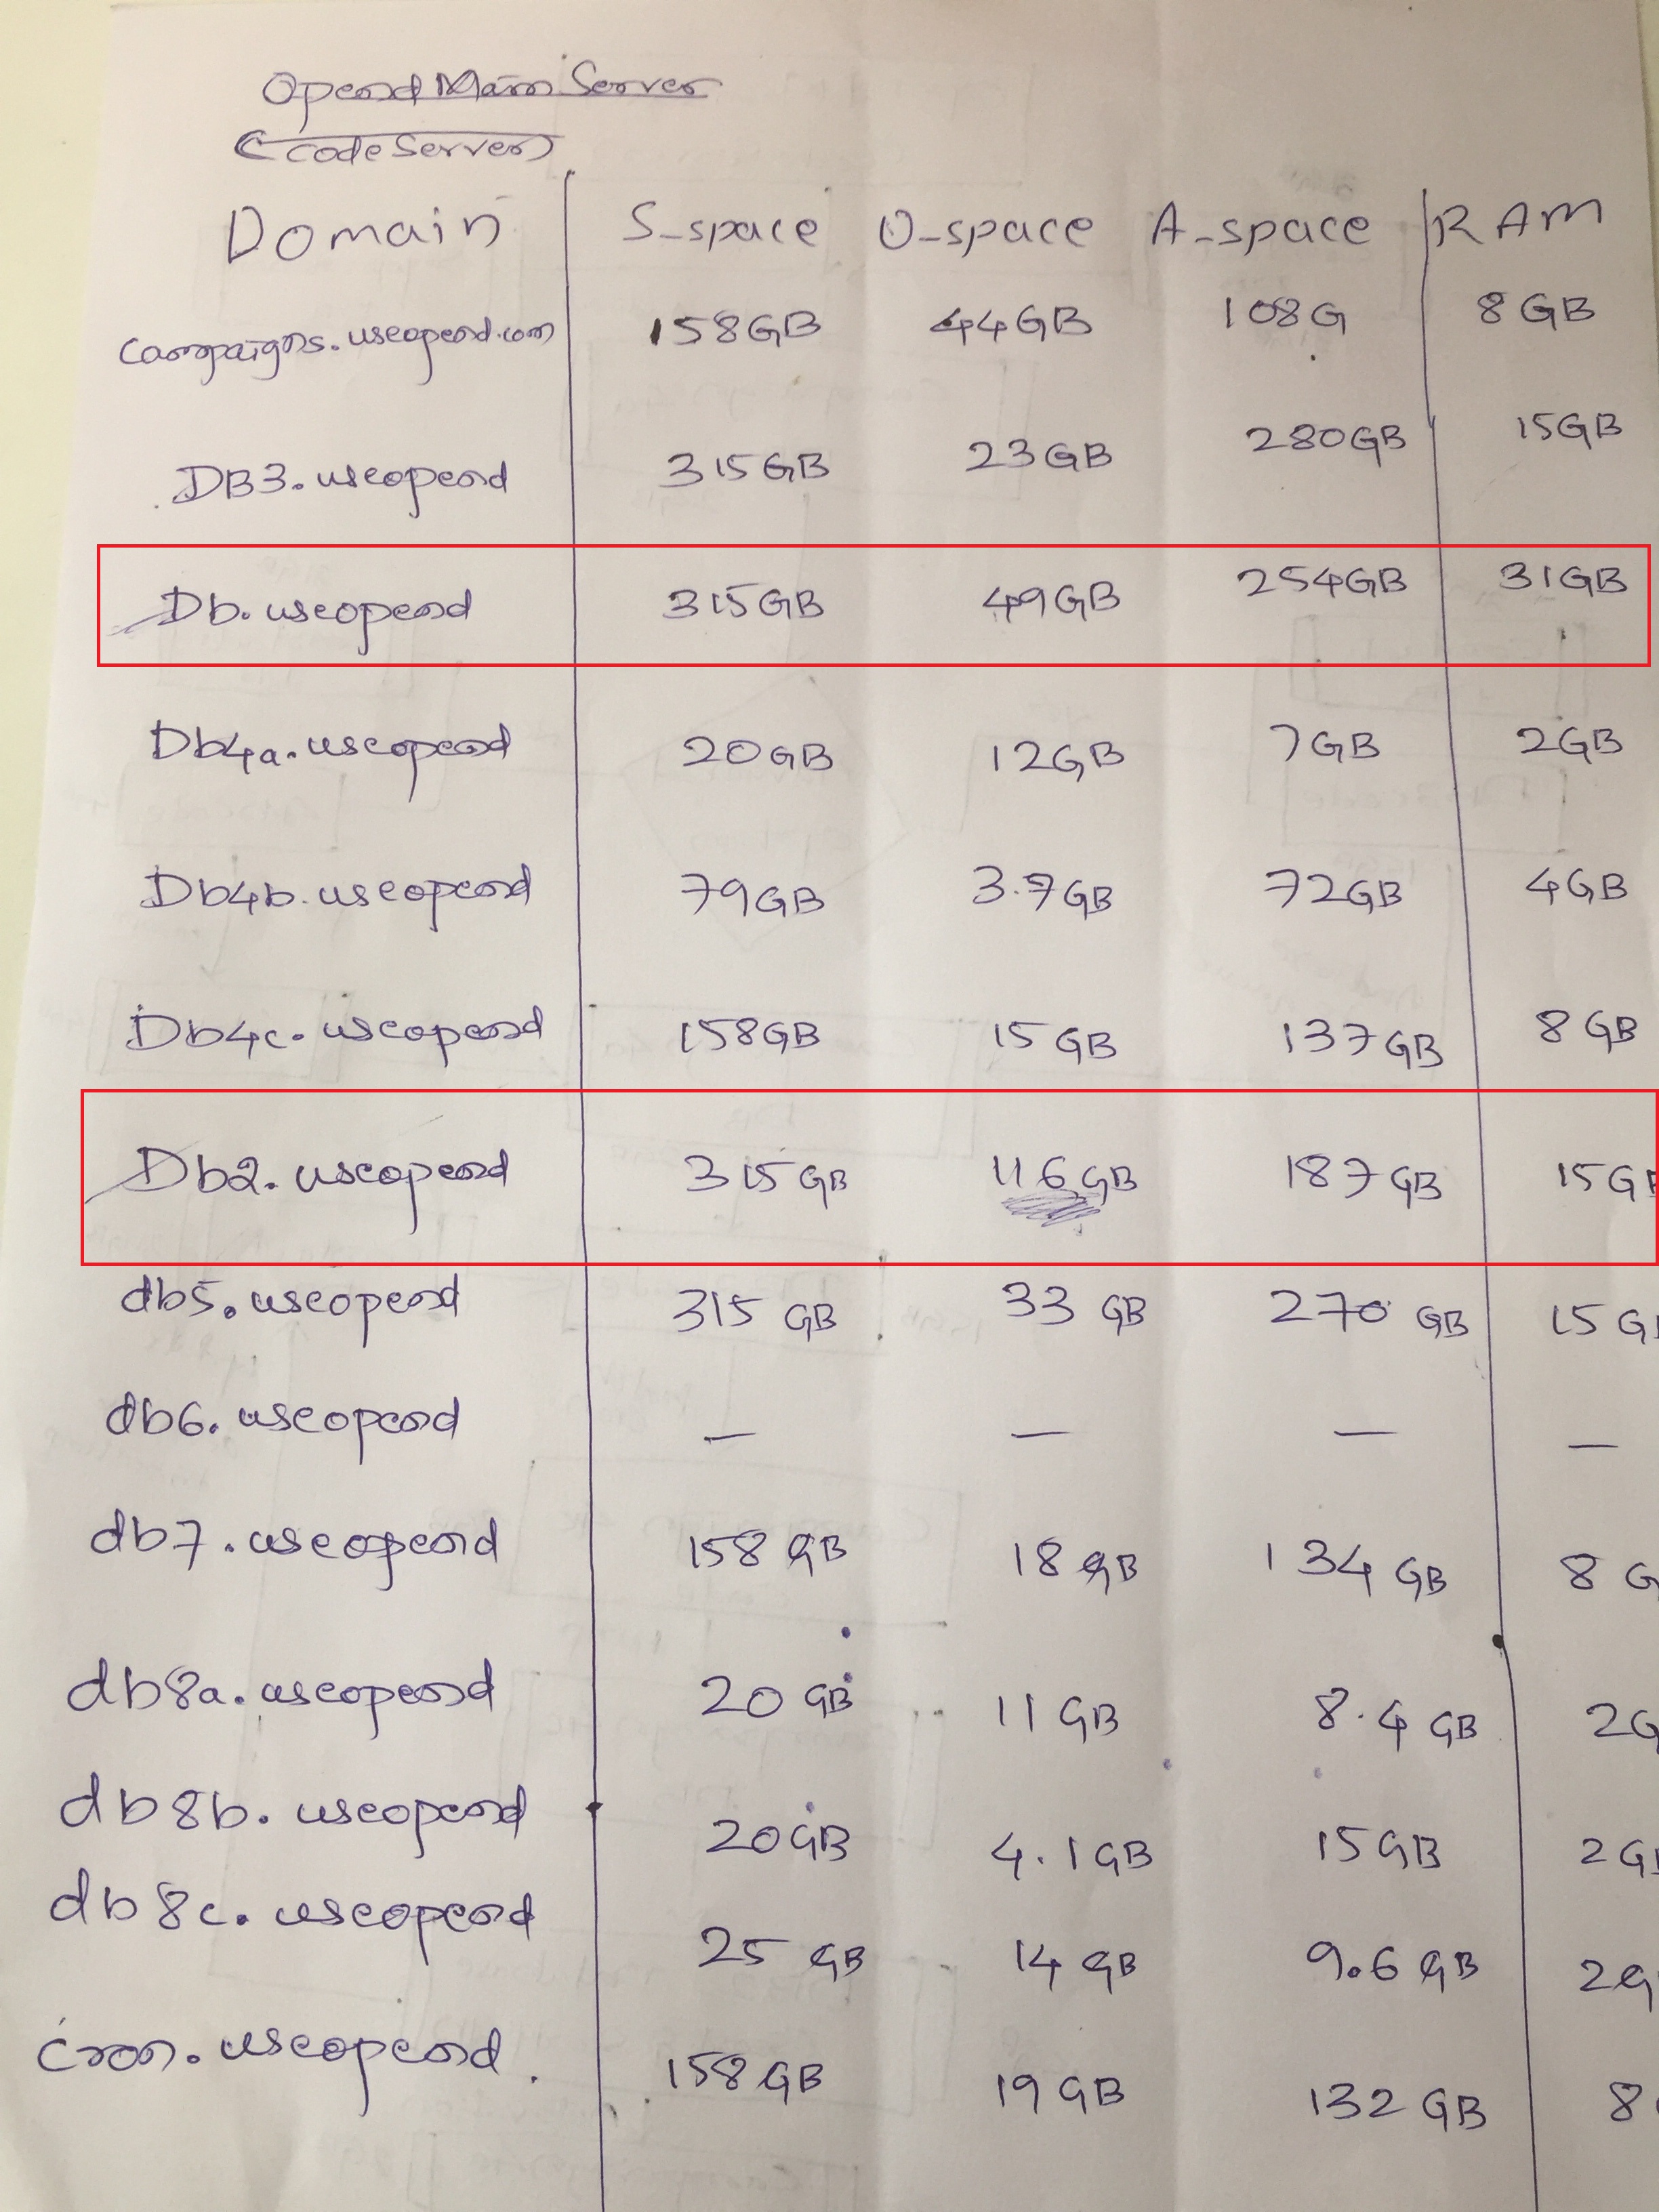 Opend Main Server
(code Server)
Domain S_space U_space A_space RAM
campaigns.useopend.com 158GB 44GB 108G 8GB
DB3.useopend 315GB 23GB 280GB 15GB
Db.useopend 315GB 49GB 254GB 31GB
Db4a.useopend 20GB 12GB 7GB 2GB
Db4b.useopend 79GB 3.7GB 72GB 4GB
Db4c.useopend 158GB 15GB 137GB 8GB
Db2.useopend 315GB 116GB 187GB 15G
db5.useopend 315 GB 33 GB 270 GB 15 G
db6.useopend — — — —
db7.useopend 158 GB 18 GB 134 GB 8 G
db8a.useopend 20 GB 11 GB 8.4 GB 2G
db8b.useopend 20GB 4.1GB 15GB 2G
db8c.useopend 25 GB 14 GB 9.6 GB 2G
cron.useopend. 158GB 19GB 132 GB 8